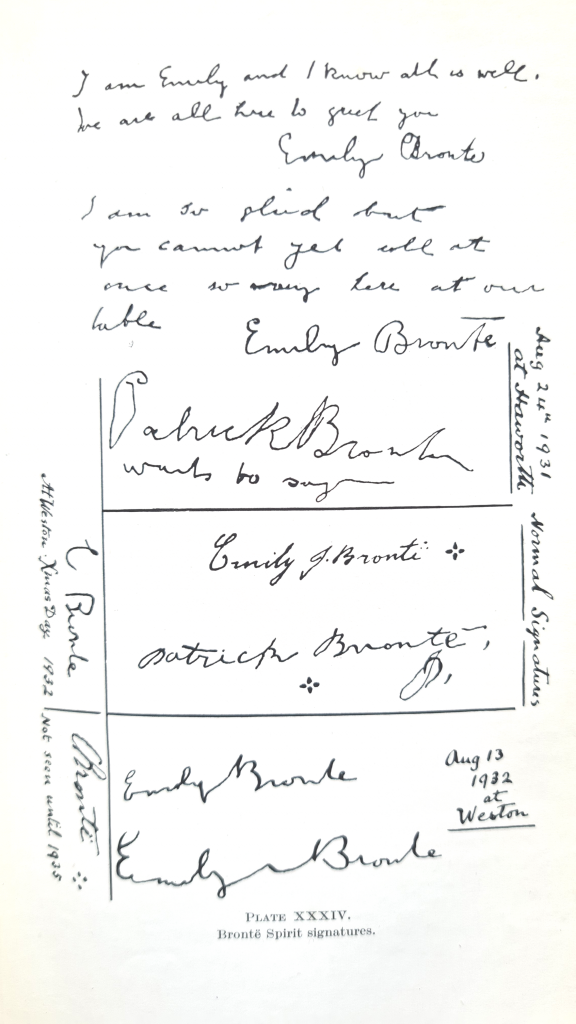 I am Emily and I know all is well.
We are all here to greet you
Emily Bronte
I am so glad but
you cannot yet all at
once so many here at our
table
Emily Bronte
Patrick Bronte
wants to say
Aug 24th 1931
at Haworth
Emily J. Brontë
Patrick Brontë,
P,
Normal Signatures
C Bronte
At Weston Xmas Day 1932
Emily Bronte
Emily Bronte
Aug 13
1932
at
Weston
CBrontë
Not seen until 1935
PLATE XXXIV.
Brontë Spirit signatures.